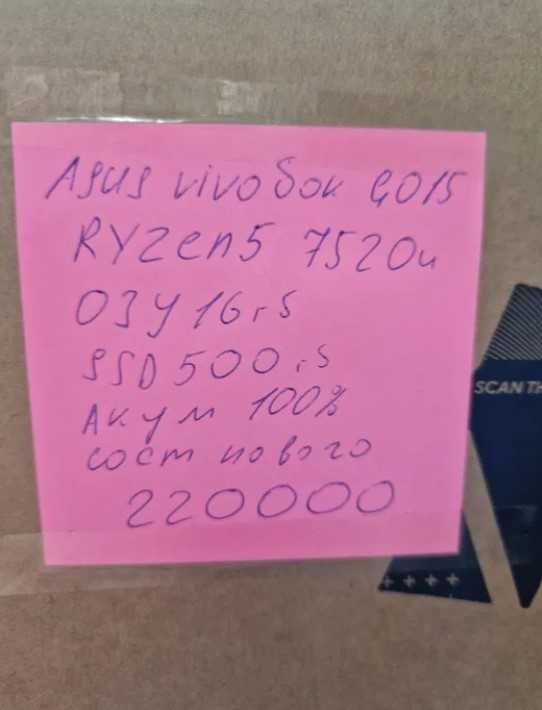 Asus vivoбок GO15
RYZen5 7520u
ОЗУ 16гб
SSD 500гб
Акум 100%
сост нового
220000
SCAN TH
++++